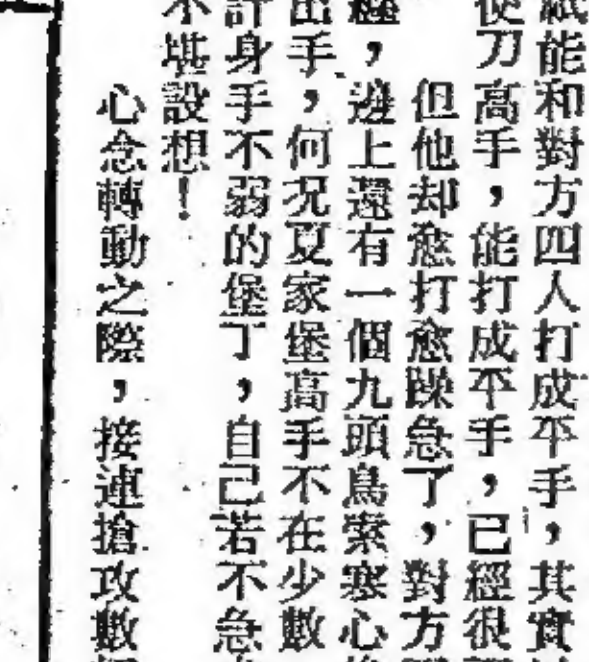 能和對方四人打成平手，其實
刀高手，能打成平手，已經很
但他却愈打愈躁急了，對方
，邊上還有一個九頭鳥索寒心
出手，何況夏家堡高手不在少數
計身手不弱的堡丁，自己若不急
不堪設想！
心念轉動之際，接連搶攻數